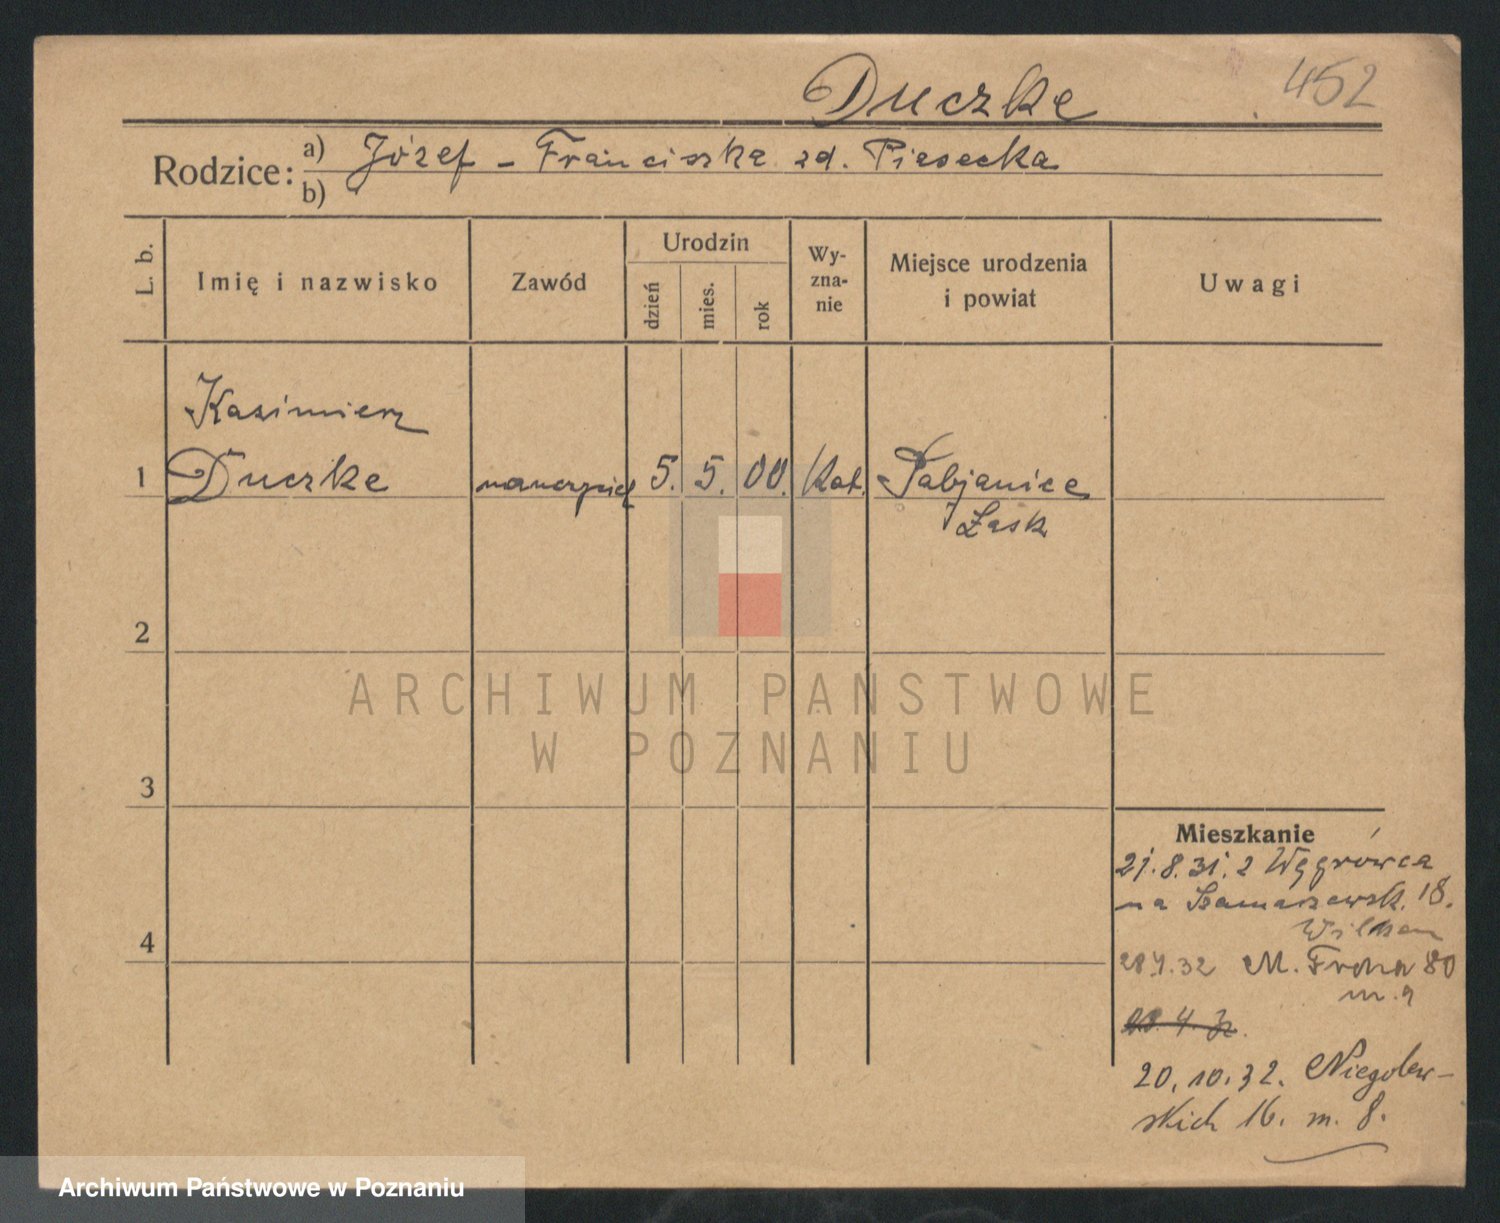 Duczke
452
Rodzice: a) Józef – Franciszka zd. Piasecka
b)
L. b.
Imię i nazwisko
Zawód
Urodzin
dzień
mies.
rok
Wy-
zna-
nie
Miejsce urodzenia
i powiat
Uwagi
Kazimierz
1 Duczke nauczyciel 5. 5. 00. Kat. Pabjanice
Łask
2
3
4
Mieszkanie
21.8.31. z Wągrówca
na Szamarzewsk. 18.
28.4.32 M. Focha 80
m. 9
28.4.32.
20.10.32. Niegolew-
skich 16. m. 8.
ARCHIWUM PAŃSTWOWE
W POZNANIU
Archiwum Państwowe w Poznaniu